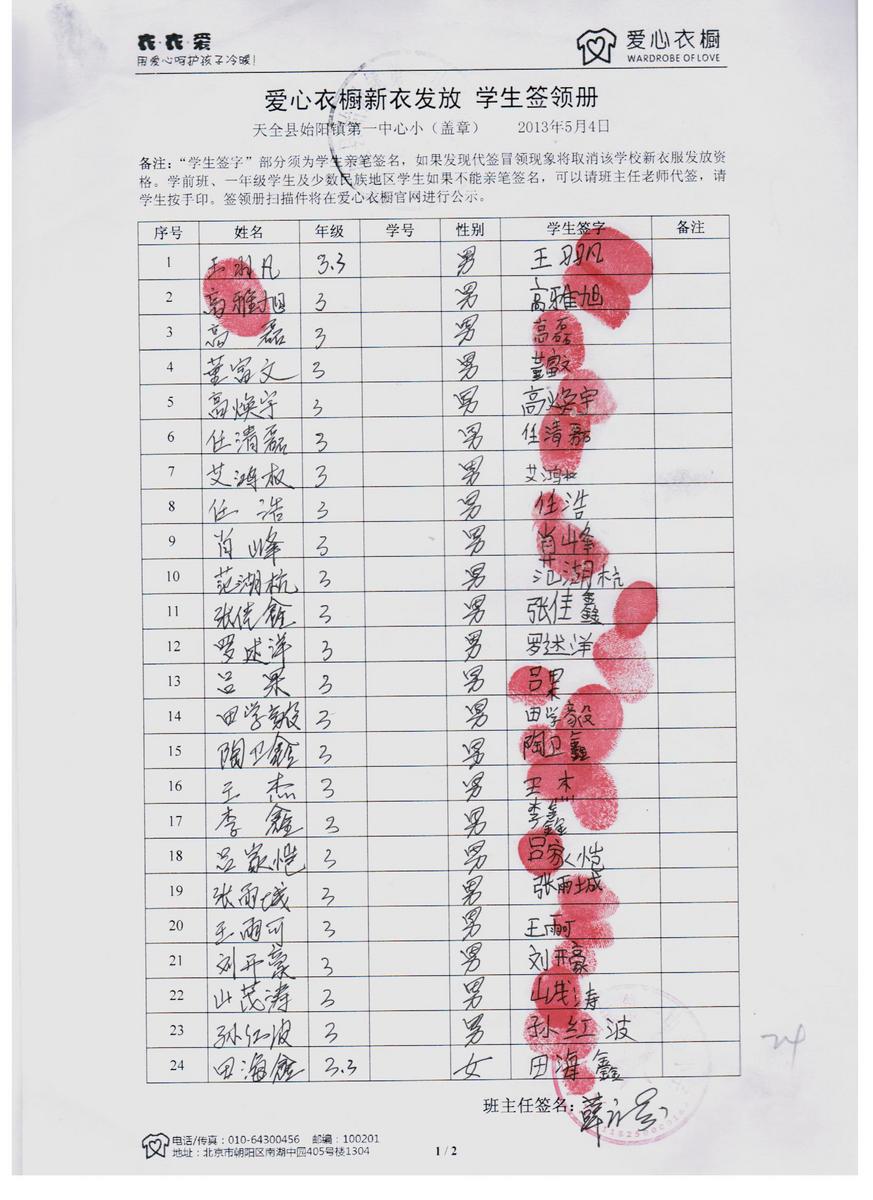 衣·衣·爱
用爱心呵护孩子冷暖!
爱心衣橱
WARDROBE OF LOVE
爱心衣橱新衣发放 学生签领册
天全县始阳镇第一中心小（盖章） 2013年5月4日
备注：“学生签字”部分须为学生亲笔签名，如果发现代签冒领现象将取消该学校新衣服发放资
格。学前班、一年级学生及少数民族地区学生如果不能亲笔签名，可以请班主任老师代签，请
学生按手印。签领册扫描件将在爱心衣橱官网进行公示。
序号 姓名 年级 学号 性别 学生签字 备注
1 王羽凡 3.3 男 王羽凡
2 高雅旭 3 男 高雅旭
3 高磊 3 男 高磊
4 董富文 3 男 董富文
5 高焕宇 3 男 高焕宇
6 任清磊 3 男 任清磊
7 艾鸿权 3 男 艾鸿权
8 任浩 3 男 任浩
9 肖峰 3 男 肖峰
10 范湖杭 3 男 范湖杭
11 张佳鑫 3 男 张佳鑫
12 罗述洋 3 男 罗述洋
13 吕果 3 男 吕果
14 田学毅 3 男 田学毅
15 陶卫鑫 3 男 陶卫鑫
16 王杰 3 男 王杰
17 李鑫 3 男 李鑫
18 吕家恺 3 男 吕家恺
19 张雨城 3 男 张雨城
20 王雨可 3 男 王雨可
21 刘开豪 3 男 刘开豪
22 山茂涛 3 男 山茂涛
23 孙红波 3 男 孙红波
24 田海鑫 3.3 女 田海鑫
班主任签名：
电话/传真：010-64300456 邮编：100201
地址：北京市朝阳区南湖中园405号楼1304
1 / 2